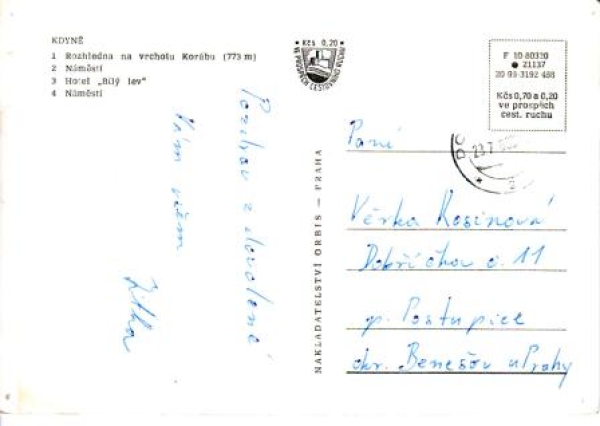 KDYNĚ
1 Rozhledna na vrcholu Korábu (773 m)
2 Náměstí
3 Hotel „Bílý lev"
4 Náměstí
Kčs 0,20
VE PROSPĚCH CESTOVNÍHO RUCHU
F 10 80320
21137
20 95-3192 488
Kčs 0,70 a 0,20
ve prospěch
cest. ruchu
Pozdrav z dovolené
Vám všem
Jitka
NAKLADATELSTVÍ ORBIS — PRAHA
23.7.
2
Paní
Věrka Rosinová
Dobříčkov č. 11
p. Postupice
okr. Benešov u Prahy